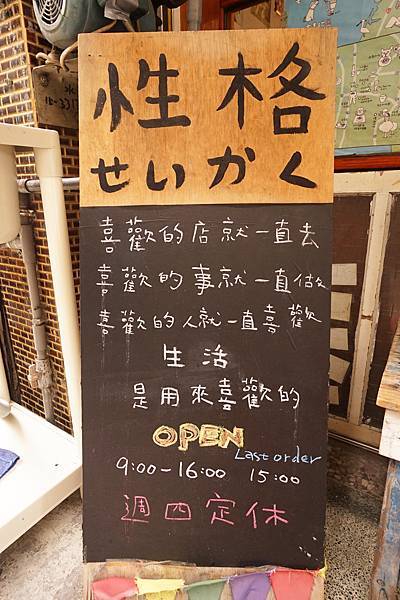 性格
せいかく
喜歡的店就一直去
喜歡的事就一直做
喜歡的人就一直喜歡
生活
是用來喜歡的
OPEN
Last order
9:00-16:00 15:00
週四定休